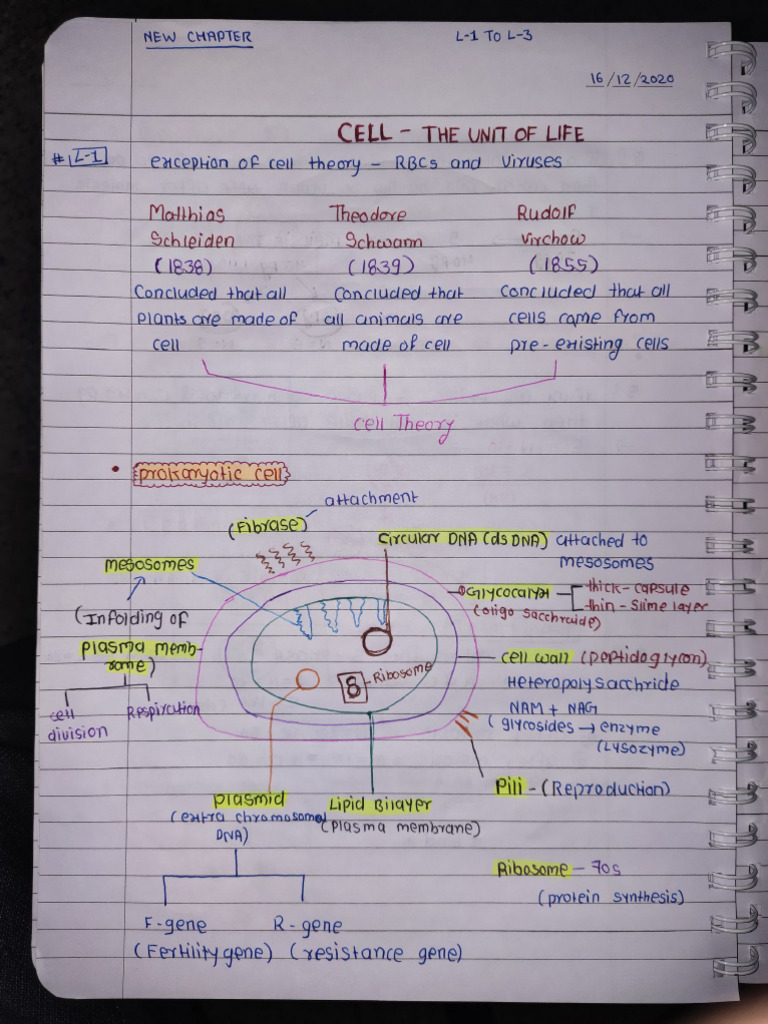 NEW CHAPTER
L-1 TO L-3
16/12/2020
CELL - THE UNIT OF LIFE
# L-1
exception of cell theory - RBCs and Viruses
Matthias Theodore Rudolf
Schleiden Schwann Virchow
(1838) (1839) (1855)
Concluded that all Concluded that Concluded that all
plants are made of all animals are cells came from
cell made of cell pre-existing cells
Cell Theory
• prokaryotic cell
attachment
(Fibrase)
Circular DNA (dsDNA) attached to
mesosomes
Mesosomes
Glycocalyx thick - capsule
(oligo sacchraide) thin - slime layer
(Infolding of
plasma memb-
rane)
cell wall (peptidoglycan)
Heteropolysacchride
NAM + NAG
(glycosides → enzyme
(Lysozyme)
Ribosome
8
cell
division
Respiration
Pili - (Reproduction)
plasmid
(extra chromosomal
DNA)
Lipid Bilayer
(plasma membrane)
Ribosome - 70s
(protein synthesis)
F-gene R-gene
(Fertility gene) (resistance gene)